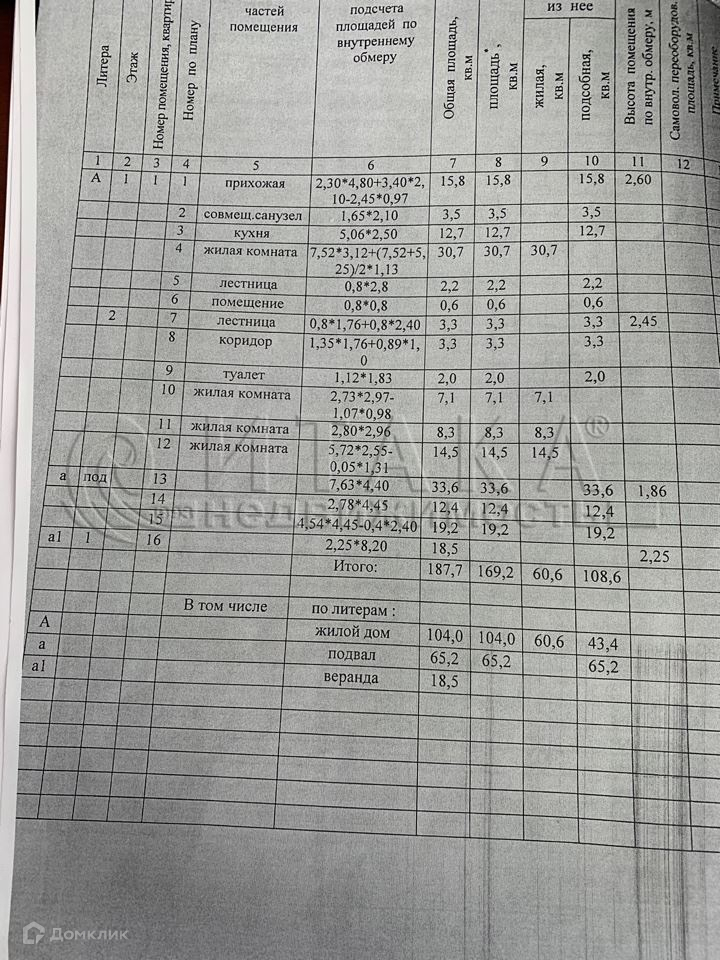 Литера
Этаж
Номер помещения, кварти
Номер по плану
частей
помещения
подсчета
площадей по
внутреннему
обмеру
Общая площадь,
кв.м
площадь*,
кв.м
из нее
жилая,
кв.м
подсобная,
кв.м
Высота помещения
по внутр. обмеру, м
Самовол. переоборудов.
площадь, кв.м
Примечание
1 2 3 4 5 6 7 8 9 10 11 12
А 1 1 1 прихожая 2,30*4,80+3,40*2, 15,8 15,8 15,8 2,60
10-2,45*0,97
2 совмещ.санузел 1,65*2,10 3,5 3,5 3,5
3 кухня 5,06*2,50 12,7 12,7 12,7
4 жилая комната 7,52*3,12+(7,52+5, 30,7 30,7 30,7
25)/2*1,13
5 лестница 0,8*2,8 2,2 2,2 2,2
6 помещение 0,8*0,8 0,6 0,6 0,6
2 7 лестница 0,8*1,76+0,8*2,40 3,3 3,3 3,3 2,45
8 коридор 1,35*1,76+0,89*1, 3,3 3,3 3,3
0
9 туалет 1,12*1,83 2,0 2,0 2,0
10 жилая комната 2,73*2,97- 7,1 7,1 7,1
1,07*0,98
11 жилая комната 2,80*2,96 8,3 8,3 8,3
12 жилая комната 5,72*2,55- 14,5 14,5 14,5
0,05*1,31
а под 13 7,63*4,40 33,6 33,6 33,6 1,86
14 2,78*4,45 12,4 12,4 12,4
15 4,54*4,45-0,4*2,40 19,2 19,2 19,2
а1 1 16 2,25*8,20 18,5 2,25
Итого: 187,7 169,2 60,6 108,6
В том числе по литерам :
А жилой дом 104,0 104,0 60,6 43,4
а подвал 65,2 65,2 65,2
а1 веранда 18,5
ИТАКА®
Домклик